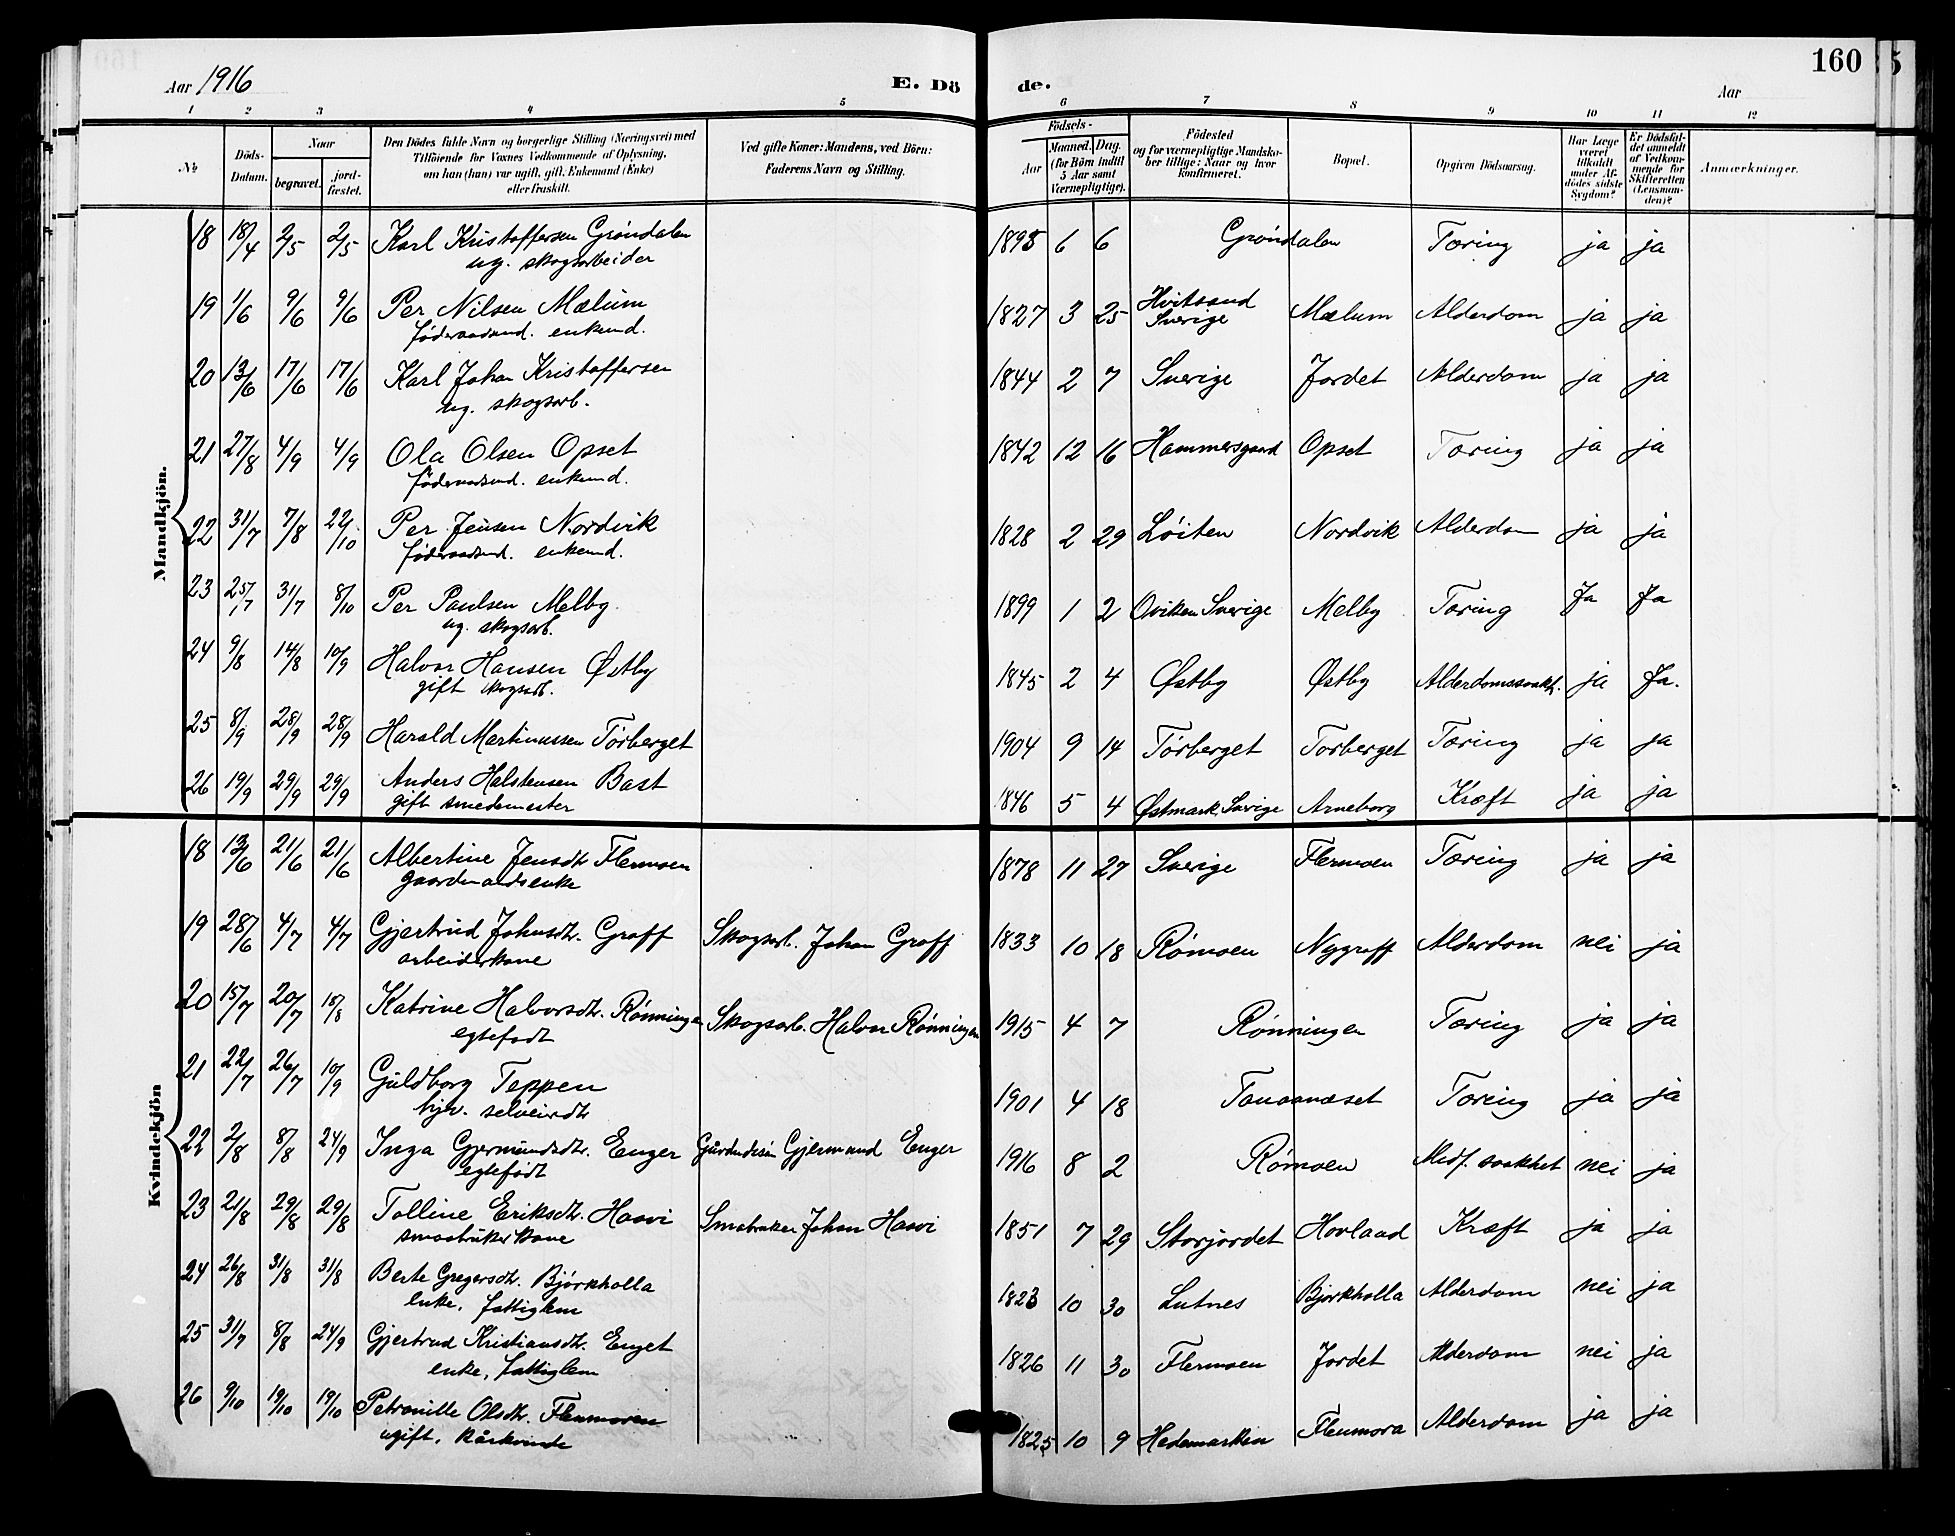 160
Aar 1916
E. Dö
de.
Aar
1 2 3 4 5 6 7 8 9 10 11 12
№
Döds-Datum.
Naar
begravet.
jord-fæstet.
Den Dödes fulde Navn og borgerlige Stilling (Næringsvei) med
Tilföiende for Voxnes Vedkommende af Oplysning,
om han (hun) var ugift, gift, Enkemand (Enke)
eller fraskilt.
Ved gifte Koner: Mandens, ved Börn:
Faderens Navn og Stilling.
Födsels-
Aar
Maaned. Dag.
(for Börn indtil
5 Aar samt
Værnepligtige).
Födested
og for værnepligtige Mandsko-
ber tillige: Naar og hvor
konfirmeret.
Bopæl.
Opgiven Dödsaarsag.
Har Læge
været
tilkaldt
under Af-
dödes sidste
Sygdom?
Er Dödsfal-
det anmeldt
af Vedkom-
mende for
Skifteretten
(Lensman-
den)?
Anmærkninger.
Mandkjön.
18 18/4 2/5 2/5 Karl Kristoffersen Grøndalen 1895 6 6 Grøndalen Tæring ja ja
ug. skogsarbeider
19 1/6 9/6 9/6 Per Nilsen Mælum 1827 3 25 Hvitsand Sverige Mælum Alderdom ja ja
føderaadsmd. enkemd.
20 13/6 17/6 17/6 Karl Johan Kristoffersen 1844 2 7 Sverige Jordet Alderdom ja ja
ug. skogsarb.
21 27/8 4/9 4/9 Ola Olsen Opset 1842 12 16 Hammersgaard Opset Tæring ja ja
føderaadsmd. enkemd.
22 31/7 7/8 22/10 Per Jensen Nordvik 1828 2 29 Løiten Nordvik Alderdom ja ja
føderaadsmd. enkemd.
23 25/7 31/7 8/10 Per Paulsen Melby 1899 1 2 Oviken Sverige Melby Tæring Ja Ja
ug. skogsarb.
24 9/8 14/8 10/9 Halvor Hansen Østby 1845 2 4 Østby Østby Alderdomssvakh. ja Ja.
gift skogsarb.
25 8/9 28/9 28/9 Harald Martinussen Tørberget 1904 9 14 Tørberget Tørberget Tæring ja ja
26 19/9 29/9 29/9 Anders Halstensen Bast 1846 5 4 Østmark, Sverige Arneborg Kræft ja ja
gift smedemester
Kvindekjön
18 13/6 21/6 21/6 Albertine Jensdtr Flermoen 1878 11 27 Sverige Flermoen Tæring ja ja
gaardmandsenke
19 28/6 4/7 4/7 Gjertrud Johnsdtr. Graff Skogsarb. Johan Graff 1833 10 18 Rømoen Nygraff Alderdom nei ja
arbeiderkone
20 15/7 20/7 18/8 Katrine Halvorsdtr. Rønningen Skogsarb. Halvor Rønningen 1915 4 7 Rønningen Tæring ja ja
egtefødt
21 22/7 26/7 10/9 Guldborg Teppen 1901 4 18 Tanaanæset Tæring ja ja
hjv. selveierdtr
22 2/8 8/8 24/9 Inga Gjermundsdtr. Enger Gjermund Enger 1916 8 2 Rømoen Medf. svakhet nei ja
egtefødt
23 21/8 29/8 29/8 Tolline Eriksdtr. Haavi Smabruker Johan Haavi 1851 7 29 Storjordet Hovlaad Kræft ja ja
smaabruker kone
24 26/8 31/8 31/8 Berte Gregersdtr. Bjørkholla 1823 10 30 Lutnes Bjørkholla Alderdom nei ja
enke, fattiglem
25 31/7 8/8 24/9 Gjertrud Kristiansdtr. Enget 1826 11 30 Flermoen Jordet Alderdom nei ja
enke, fattiglem
26 9/10 19/10 19/10 Petronille Olsdtr. Flenmoren 1825 10 9 Hedemarken Flenmora Alderdom ja ja
ugift, kårkvinde